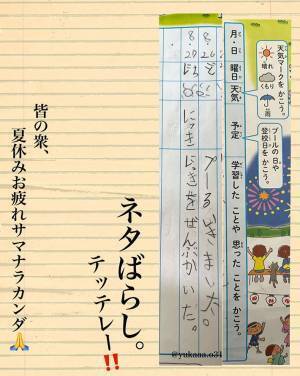 天気マークを かこう。
晴れ
くもり
雨
プールの 日や
登校日を かこう。
月・日
曜日
天気
予定
学習した ことや 思った ことを かこう。
8
26
8
20
にっき
にっきを ぜんぶ かいた。
ネタばらし。
テッテレー‼️
皆の衆、
夏休みお疲れサマナラカンダ🙏
@yukana.o31